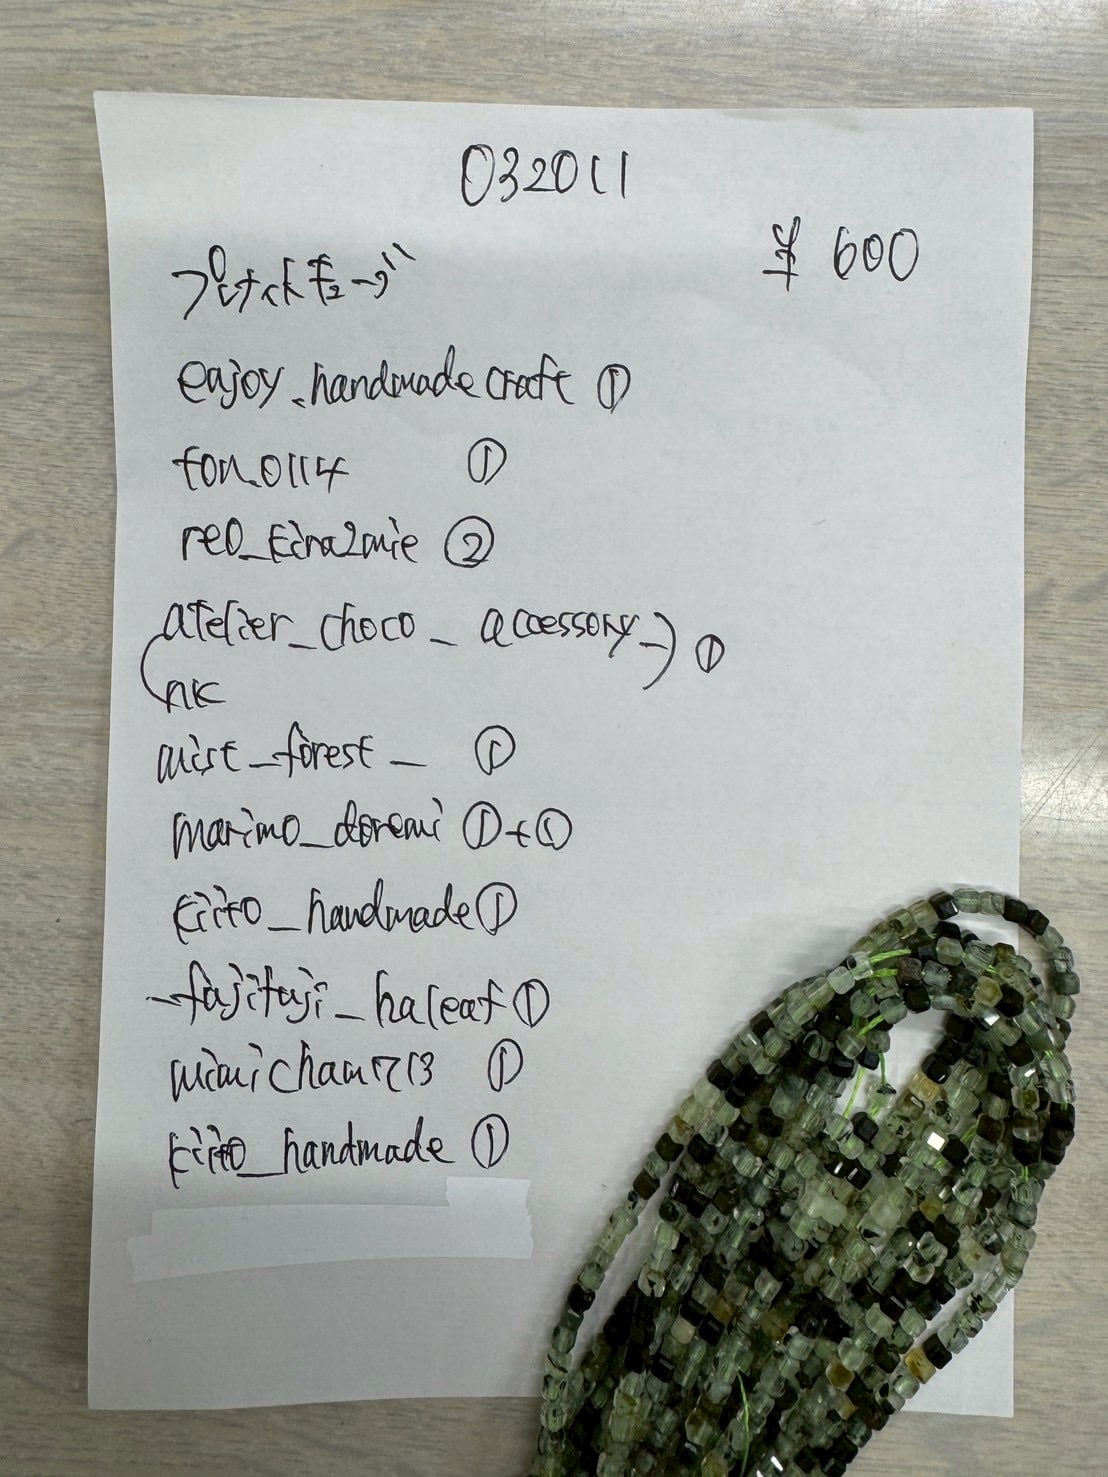 032011
¥ 600
プレナイトキューブ
enjoy.handmadecraft ①
fon.0114 ①
reo_kira2mie ②
(atelier_choco_accessory_) ①
nk
mist_forest_ ①
marimo_doremi ①+①
kiito_handmade ①
_fujifuji_haleaf ①
mimichan713 ①
kiito_handmade ①